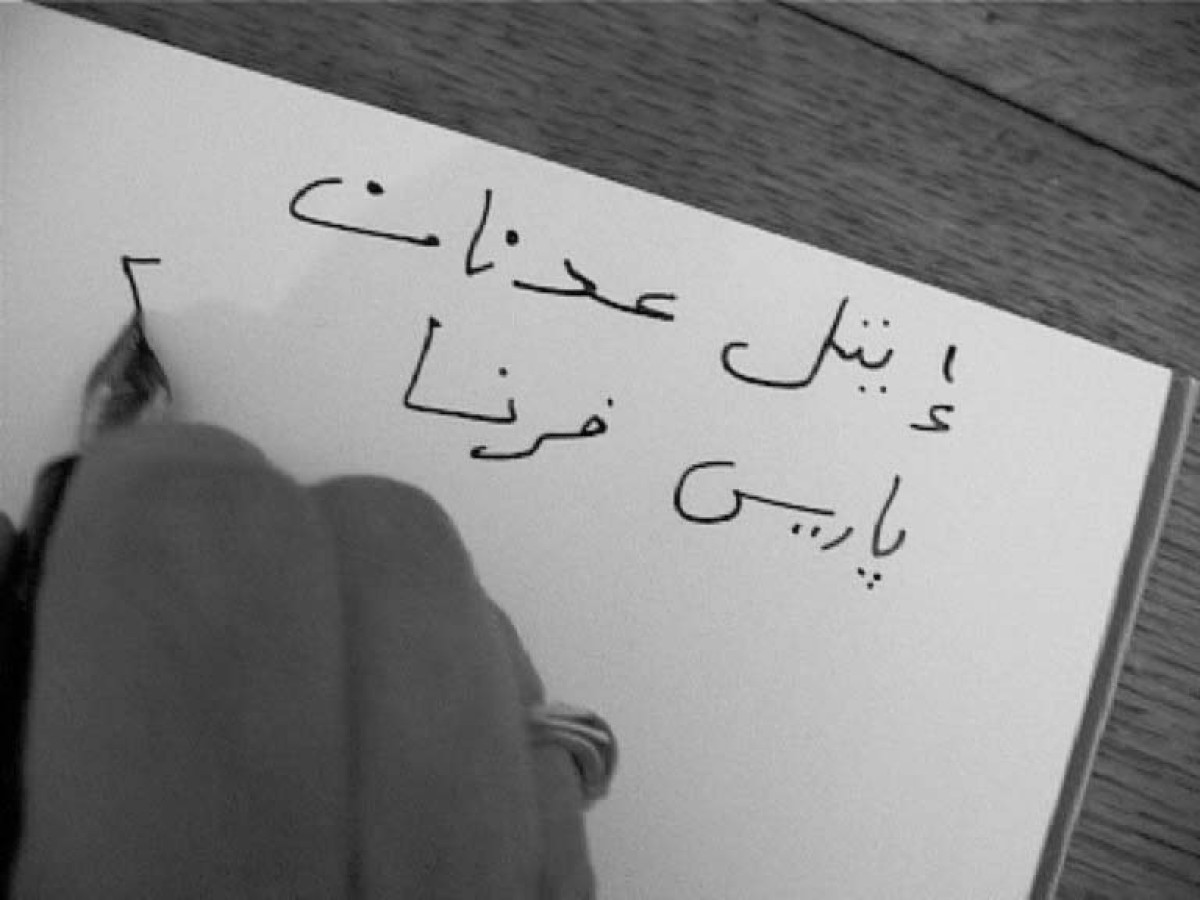 إيتيل عدنان
پاريس فرنسا ٢